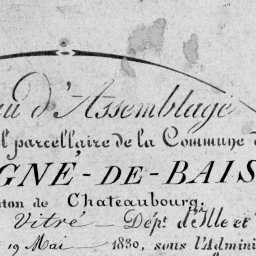 au d'Assemblage
l parcellaire de la Commune d
GNÉ-DE-BAIS
ton de Chateaubourg.
Vitré — Dépt. d'Ille et
19 Mai 1830, sous l'Admini